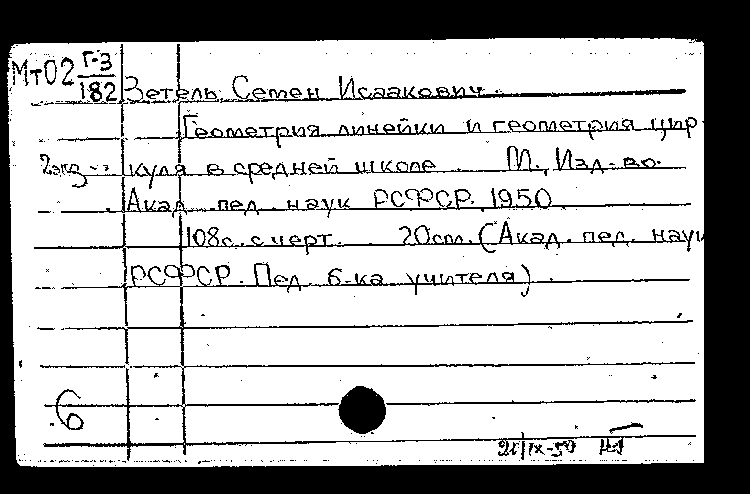 Мт02 Г-3/182 Зетель, Семен Исаакович.
Геометрия линейки и геометрия цир-
2экз куля в средней школе. М., Изд-во.
Акад. пед. наук РСФСР. 1950.
108с. с черт. 20см. (Акад. пед. наук
РСФСР. Пед. б-ка учителя).
6